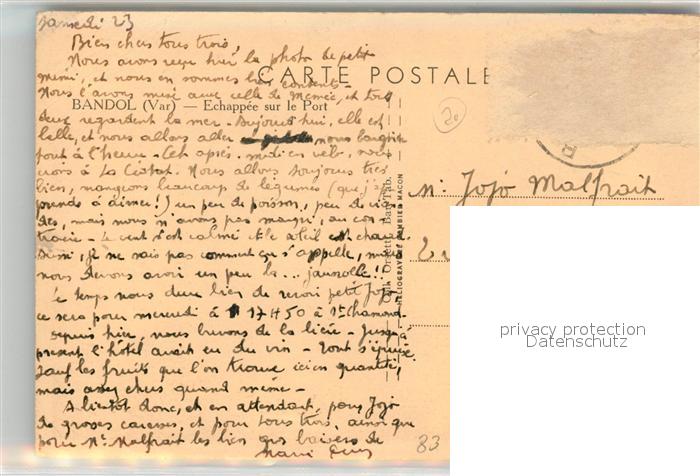 Samedi 23
Bien chers tous trois,
Nous avons reçu hier la photo de petit
mimi, et nous en sommes bien contents -
CARTE POSTALE
Nous l'avons mise avec celle de Mémée, et tous
BANDOL (Var) — Echappée sur le Port
deux regardent la mer - Aujourd'hui, elle est
belle, et nous allons aller nous baigner
tout à l'heure - Cet après-midi en vélo, nous
irons à La Ciotat. Nous allons toujours très
bien, mangeons beaucoup de légumes (que j'ap
prends à aimer!) un peu de poisson, peu de vian
des, mais nous n'avons pas maigri, au con-
traire - Le vent s'est calmé et le soleil est chaud
aussi, je ne sais pas comment ça s'appelle, mais
nous devons avoir un peu la ... !!
Le temps nous dure bien de revoir petit Jojo,
ce sera pour mercredi à 17H50 à St Chamond -
Depuis hier, nous buvons de la bière - Jusqu'à
présent l'hôtel avait eu du vin - Tout s'épuise
sauf les fruits que l'on trouve ici en quantité,
mais assez chers quand même -
A bientôt donc, et en attendant, pour Jojo
de grosses caresses, et pour tous trois, ainsi que
pour Me Malfrait les bien gros baisers de
20
HELIOGRAVURE COMBIER MACON
Mr Jojo Malfrait
83
privacy protection
Datenschutz